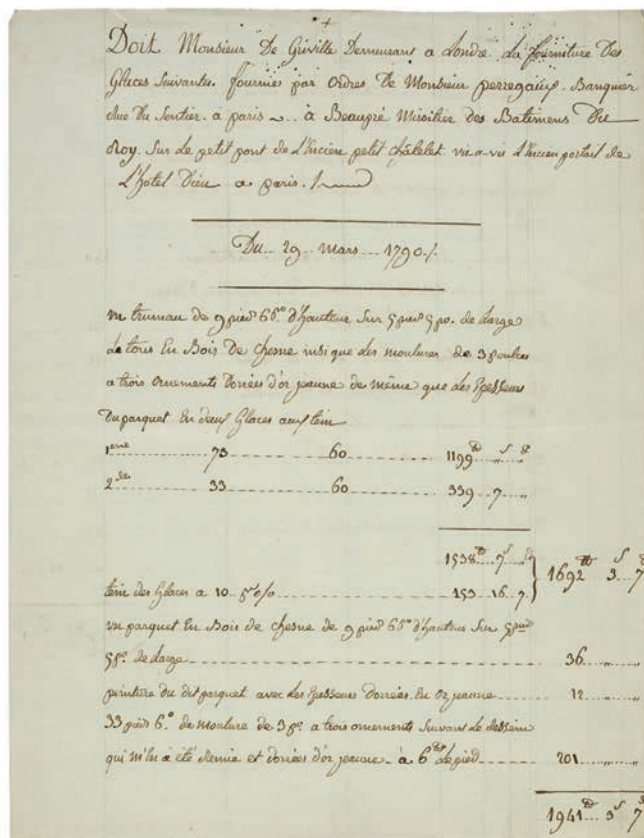 Doit Monsieur De Griville Demeurant a Londre. La fourniture Des
Glaces Suivantes. fournies par Ordres De Monsieur perregaux. Banquier
Rue Du Sentier. à paris ~.. à Beaupré Miroitier des Batimens Du
Roy. Sur Le petit pont de L'Encien petit châtelet vis-a-vis L'Encien portail de
L'hotel Dieu a paris.
Du.. 29.. Mars... 1790./.
un trumeau de 9 pieds 6 po d'hauteur Sur 5 pieds 5 po. de Large
Le tous En Bois De Chesne ainsi que Les moulures de 3 poulces
a trois Ornements Dorrées d'or jaune de même que Les Epesseurs
Du parquet En deux Glaces au tein
1ere 73 60 1199 tt s d
2de 33 60 339 7 "
1538 tt 7 s " d
1692 tt 3 s 7 d
tein des Glaces a 10. p% 153 16 7
un parquet En Bois de Chesne de 9 pieds 6 po d'hauteur Sur 5 pieds
5 po. de Large 36 " "
peinture du dit parquet avec Les Epesseurs Dorrées En Or jaune 12 " "
33 pieds 6.o de moulure de 3 po a trois ornements Suivant Le dessein
qui m'En a été Remie et Dorrées d'or jaune - à 6 tt Le pied 201 " "
1941 tt 3 s 7 d